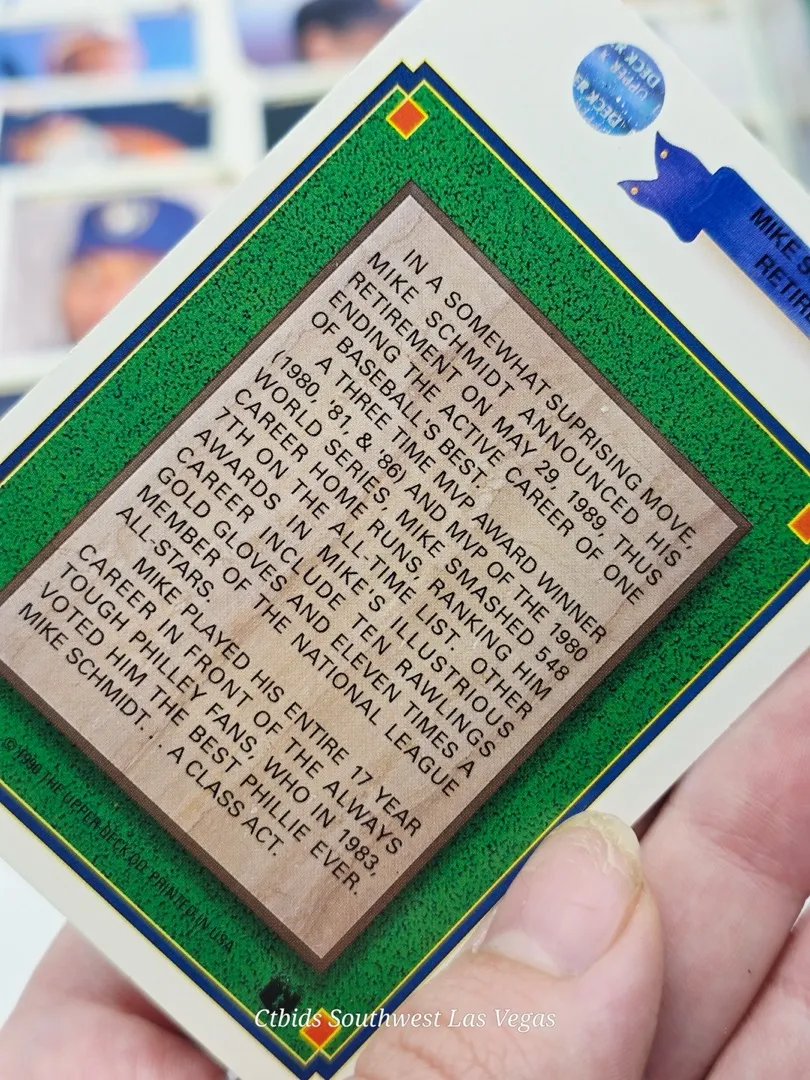 UPPER DECK
MIKE
RETIRE
IN A SOMEWHAT SUPRISING MOVE,
MIKE SCHMIDT ANNOUNCED HIS
RETIREMENT ON MAY 29, 1989, THUS
ENDING THE ACTIVE CAREER OF ONE
OF BASEBALL'S BEST.
A THREE TIME MVP AWARD WINNER
(1980, '81, & '86) AND MVP OF THE 1980
WORLD SERIES, MIKE SMASHED 548
CAREER HOME RUNS, RANKING HIM
7TH ON THE ALL-TIME LIST. OTHER
AWARDS IN MIKE'S ILLUSTRIOUS
CAREER INCLUDE TEN RAWLINGS
GOLD GLOVES AND ELEVEN TIMES A
MEMBER OF THE NATIONAL LEAGUE
ALL-STARS.
MIKE PLAYED HIS ENTIRE 17 YEAR
CAREER IN FRONT OF THE ALWAYS
TOUGH PHILLEY FANS, WHO IN 1983,
VOTED HIM THE BEST PHILLIE EVER.
MIKE SCHMIDT... A CLASS ACT.
© 1990 THE UPPER DECK CO. PRINTED IN USA
Ctbids Southwest Las Vegas